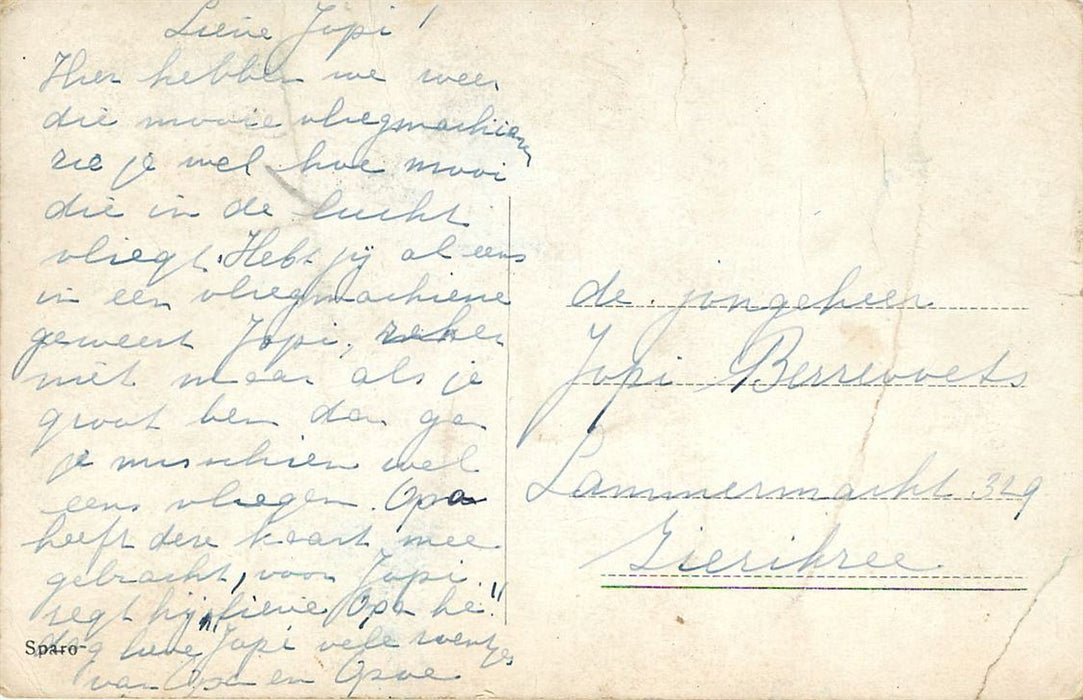 Lieve Jopi!
Hier hebben we weer
die mooie vliegmachiene
zie je wel hoe mooi
die in de lucht
vliegt. Hebt jij al eens
in een vliegmachiene
geweest Jopi, zeker
niet maar als je
groot ben dan ga
je misschien wel
eens vliegen. Opa
heeft deze kaart mee
gebracht, voor Jopi.
zegt hij, "lieve Opa he"!
dag lieve Jopi vele zoentjes
van Opa en Opoe
Sparo
de jongeheer
Jopi Berrevoets
Lammermarkt 329
Zierikzee